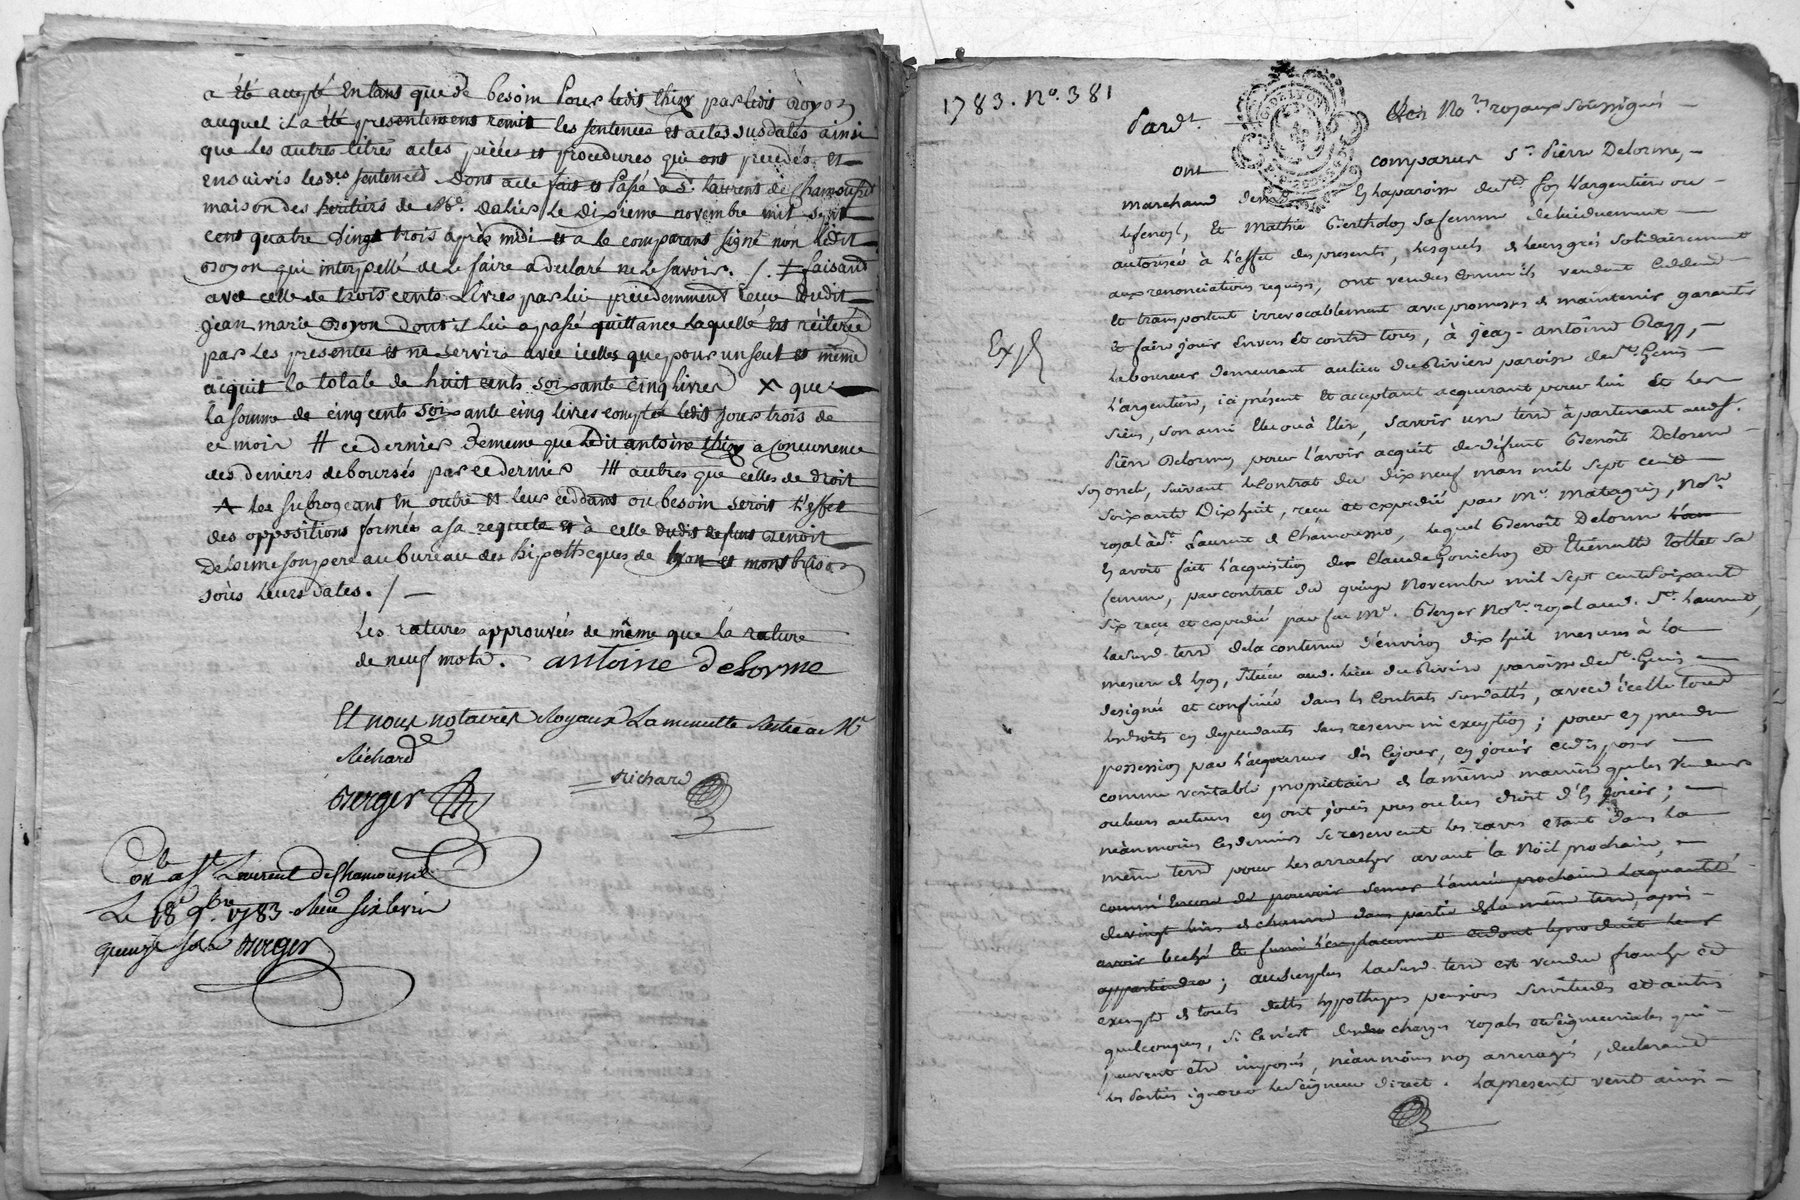 a été accepté Entant que de besoin Pour ledit thizy par ledit Royon
auquel il a été presentement remis les sentences et actes susdatés ainsi
que les autres titres actes pièces et procedures qui ont precedés et
ensuivis lesd.es sentences Dont acte fait et Passé a S.t Laurent de Chamousset
maison des heritiers de M.e Daliés le Dixieme novembre mil sept
cent quatre vingt trois après midi et a le comparant signé non ledit
Royon qui interpellé de le faire a declaré ne le savoir. /. ‡ faisant
avec celle de trois cents Livres par lui précedemment reçue dudit
jean marie Royon dont il lui a passé quittance laquelle est réiterée
par les presentes et ne servira avec icelles que pour un seul et même
acquit la totale de huit cents soixante cinq livres X que
la somme de cinq cents soixante cinq livres comptée ledit jour trois de
ce mois # ce dernier de meme que ledit antoine thizy a concurrence
des deniers deboursés par ce dernier autres que celles de droit
les subrogeant En outre et leur ceddant ou besoin seroit l'effet
des oppositions formées a sa requete et à celle dudit defunt Benoit
Delorme son pere au bureau des hipothcques de lyon et montbrison
sous leurs dates. /
Les ratures approuvées de même que la rature
de neuf mots. antoine delorme
Et nous notaires Royaux La minutte Restée a M.e
Richard
Berger Richard
Con.le a S.t Laurent De Chamousset
Le 18 9.bre 1783 Reçu six livres
quinze sols Berger
1783. N.o 381
Pard.t Les No.res royaux soussignés
ont comparus S.r Pierre Delorme,
marchand dem.t En la paroisse de S.t Foy L'argentiere ou
lefenoyl, Et Mathie Bertholon sa femme de lui duement
autorisée à l'effet des presentes, lesquels de leurs grés solidairement
aux renonciations requises, ont vendus Comme ils vendent Ceddent
Et transportent irrevocablement avec promesses de maintenir garantir
et faire jouir Envers Et contre tous, à jean-antoine Razy,
laboureur demeurant au lieu du Rivier paroisse de S.t Genis
L'argentiere, ici présent Et acceptant acquerant pour lui Et les
siens, son ami Elu ou à Elire, savoir une terre apartenant aud. S.r
Pierre Delorme pour l'avoir acquit de défunt Benoît Delorme
son oncle, suivant le Contrat du dix neuf mars mil sept cent
soixante Dix huit, reçu et expedié par M.e Matagrin, No.re
royal à S.t Laurent de Chamousset, lequel Benoît Delorme l'av
En avoit fait l'acquisition de Claude Gonichon et Etiennette Tollet sa
femme, par contrat du quinze Novembre mil sept cent soixante
six reçu et expedié par feu M.e Berger No.re royal aud. S.t Laurent,
ladite terre de la contenue d'environ dix huit mesures à la
mesure de lyon, située aud. lieu du Rivier paroisse de S.t Genis
designée et confinée dans les Contrats susdattés, avec d'icelle tous
les droits en dependants sans reserve ni exception; pour en prendre
possession par l'acquereur dès Ce jour, en jouir et disposer
comme veritable proprietaire de la même maniere que les Vendeurs
ou leurs auteurs en ont jouis pus ou dus droit d'En jouir;
néanmoins Ces derniers se reservent les raves etant dans la
même terre pour les arracher avant la Noël prochaine,
comme Encore de pouvoir semer l'année prochaine la quantité
de vingt livres de chanvre dans partie de la même terre, après
avoir beché Et fumé l'emplacement et dont le produit leur
appartiendra; au surplus ladite terre est vendue franche et
exempte de toutes dettes hypotheques pensions servitudes et autres
quelconques, si ce n'est des charges royales et Seigneuriales qui
peuvent être imposées, néanmoins non arreragés, declarant
les Parties ignorer le Seigneur direct. La presente vente ainsi